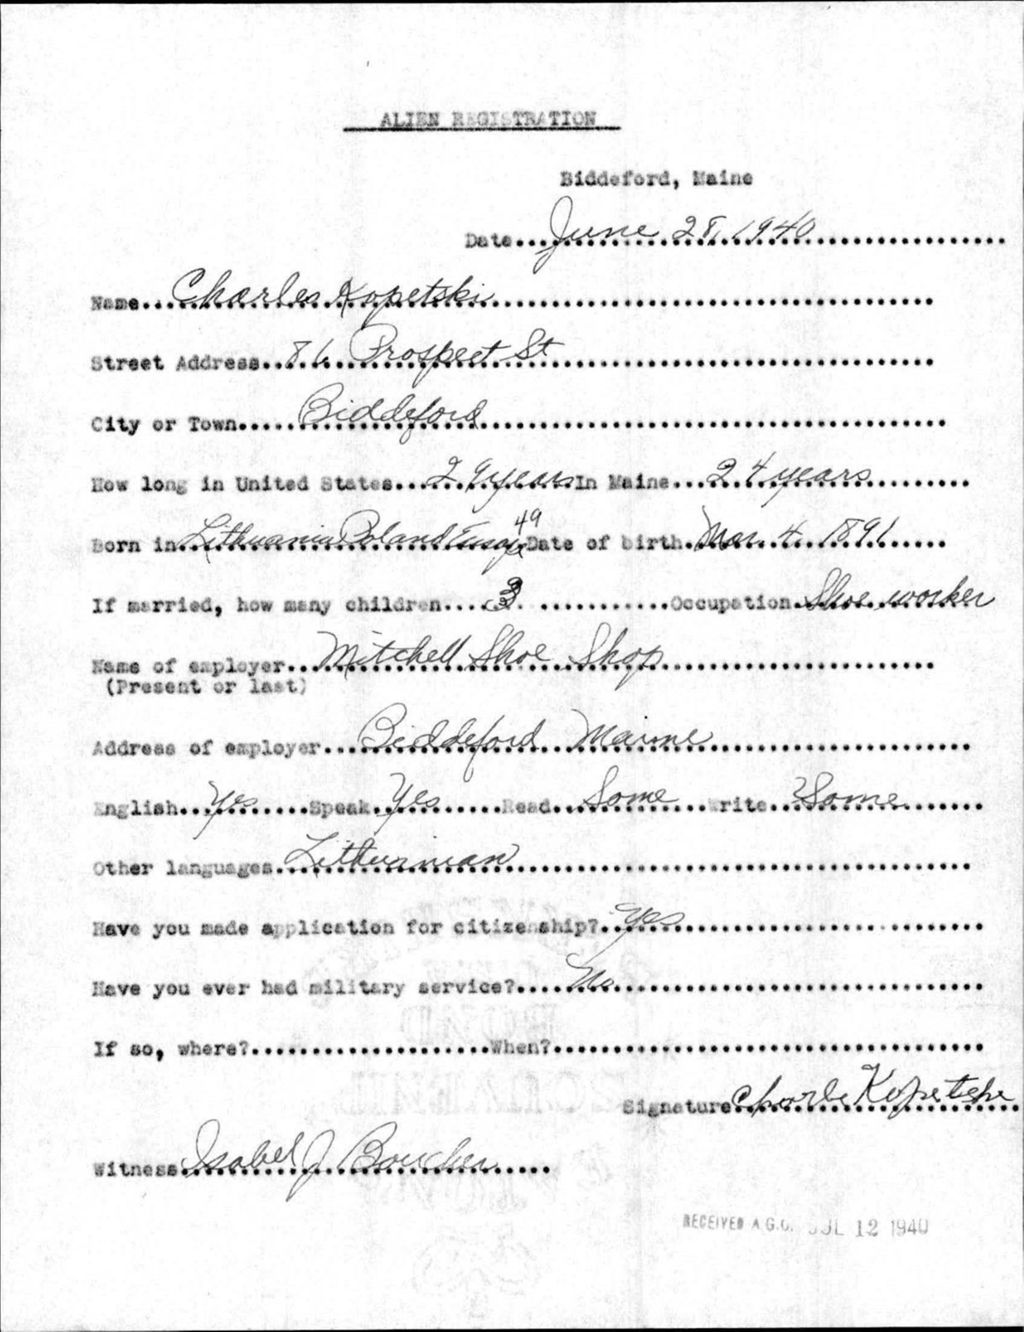 ALIEN REGISTRATION
Biddeford, Maine
Date...June 28, 1940
Name...Charles Kopetski
Street Address...86 Prospect St
City or Town...Biddeford
How long in United States...29 years In Maine...24 years
49
Born in Lithuania Poland Europe Date of birth Mar. 4 1891
If married, how many children...3 Occupation Shoe worker
Name of employer...Mitchell Shoe Shop
(Present or last)
Address of employer...Biddeford Maine
English...Yes Speak...Yes Read...Some Write...Some
Other languages...Lithuanian
Have you made application for citizenship?...Yes
Have you ever had military service?...No
If so, where?...When?...
Signature...Charle Kopetske
Witness Isabel J Boucher
RECEIVED A.G.O. JUL 12 1940